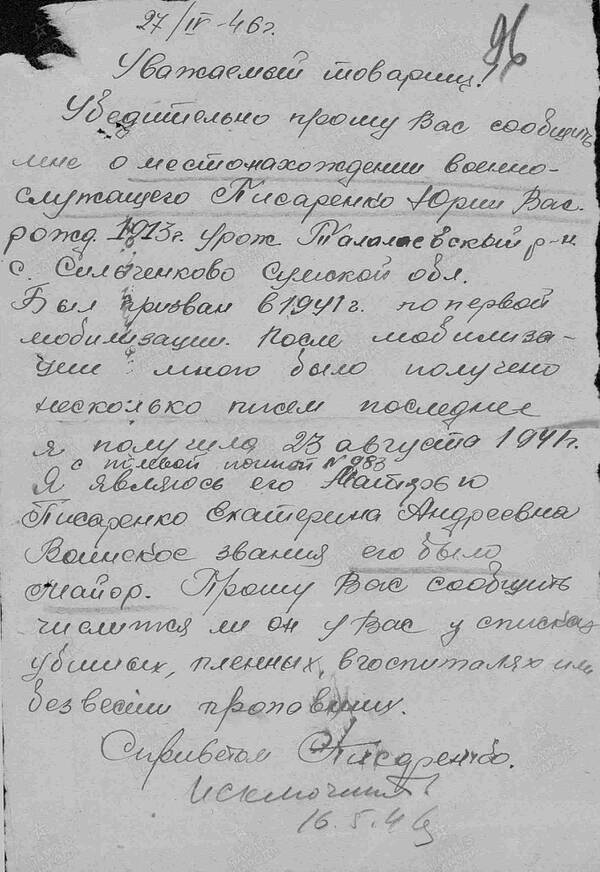 27/IV-46г.
96
Уважаемый товарищ!
Убедительно прошу Вас сообщить
мне о местонахождении военно-
служащего Писаренко Юрии Вас.
рожд. 1913г. урож Талалаевский р-н
с. Сильченково Сумской обл.
Был призван в 1941г. по первой
мобилизации. После мобилиза-
ции мною было получено
несколько писем последнее
я получила 23 августа 1941г.
с полевой почтой № 983
Я являюсь его Матерью
Писаренко Екатерина Андреевна
Воинское звания его было
майор. Прошу Вас сообщить
числится ли он у Вас у списках
убитых, пленных, в госпиталях или
без вести пропавших.
С приветом Писаренко.
исключить
16.5.46